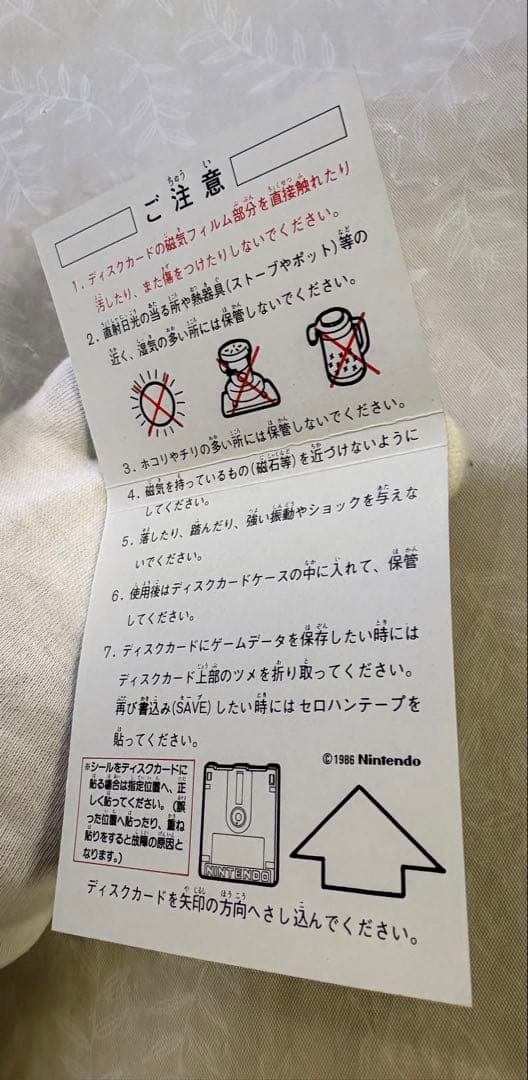 ご注意
1. ディスクカードの磁気フィルム部分を直接触れたり
汚したり、また傷をつけたりしないでください。
2. 直射日光の当る所や熱器具(ストーブやポット)等の
近く、湿気の多い所には保管しないでください。
3. ホコリやチリの多い所には保管しないでください。
4. 磁気を持っているもの(磁石等)を近づけないように
してください。
5. 落したり、踏んだり、強い振動やショックを与えな
いでください。
6. 使用後はディスクカードケースの中に入れて、保管
してください。
7. ディスクカードにゲームデータを保存したい時には
ディスクカード上部のツメを折り取ってください。
再び書込み(SAVE)したい時にはセロハンテープを
貼ってください。
©1986 Nintendo
※シールをディスクカードに
貼る場合は指定位置へ、正
しく貼ってください。(誤
った位置へ貼ったり、重ね
貼りをすると故障の原因と
なります。)
NINTENDO
ディスクカードを矢印の方向へさし込んでください。